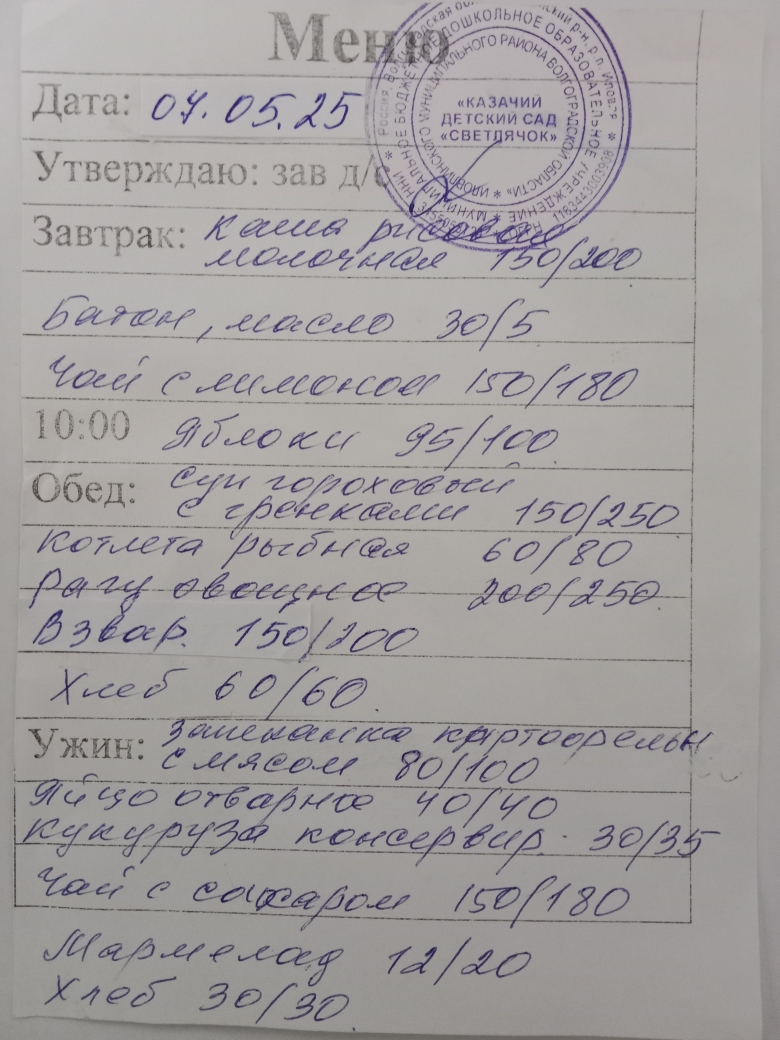 Меню
Дата: 07.05.25
Утверждаю: зав д/с
«КАЗАЧИЙ
ДЕТСКИЙ САД
«СВЕТЛЯЧОК»
МУНИЦИПАЛЬНОЕ БЮДЖЕТНОЕ ДОШКОЛЬНОЕ ОБРАЗОВАТЕЛЬНОЕ УЧРЕЖДЕНИЕ
ИЛОВЛИНСКОГО МУНИЦИПАЛЬНОГО РАЙОНА ВОЛГОГРАДСКОЙ ОБЛАСТИ»
Завтрак: Каша рисовая
молочная 150/200
Батон, масло 30/5
Чай с лимоном 150/180
10:00 Яблоки 95/100
Обед: Суп гороховый
с гренками 150/250
котлета рыбная 60/80
рагу овощное 200/250
Взвар. 150/200
Хлеб 60/60
Ужин: Запеканка картофельн
с мясом 80/100
Яйцо отварное 40/40
Кукуруза консервир. 30/35
Чай с сахаром 150/180
Мармелад 12/20
Хлеб 30/30